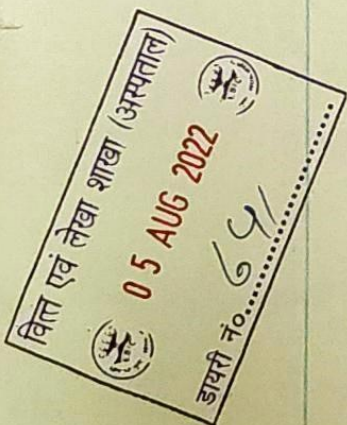 वित्त एवं लेखा शाखा (अस्पताल)
05 AUG 2022
डायरी नं०..............................